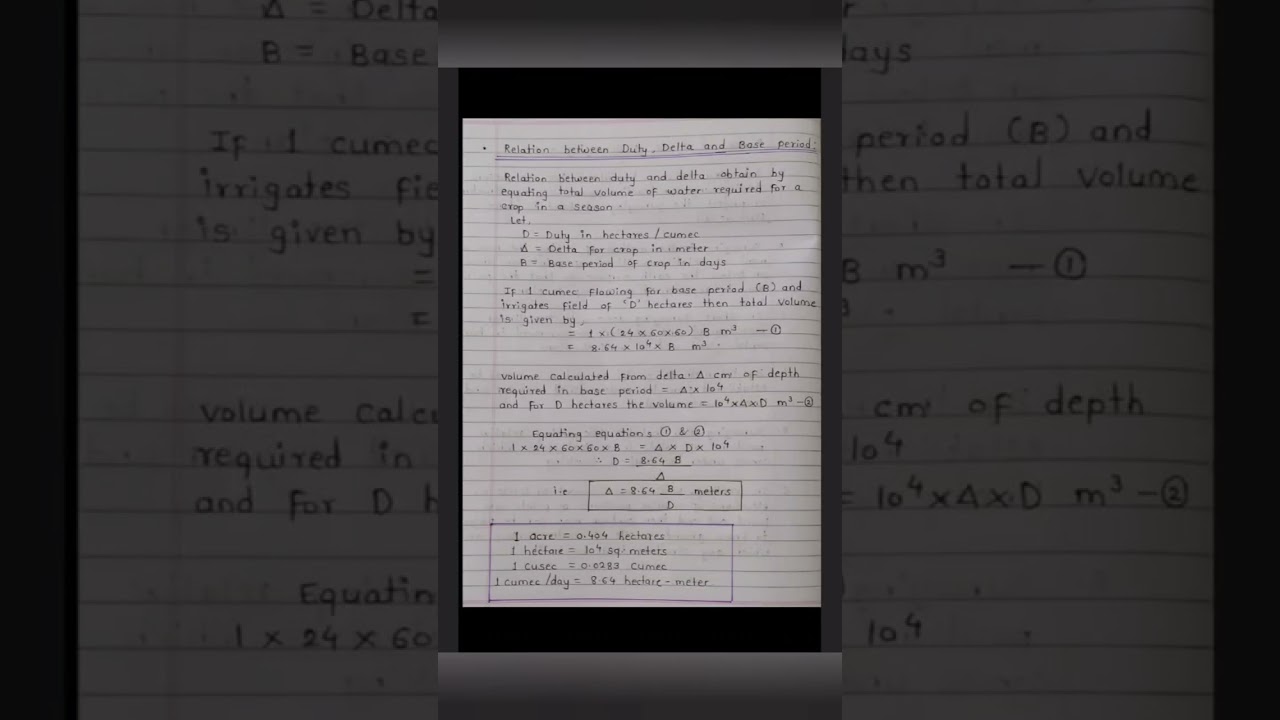 • Relation between Duty, Delta and Base period:
Relation between duty and delta obtain by
equating total volume of water required for a
crop in a season.
Let,
D = Duty in hectares / cumec
Δ = Delta for crop in meter
B = Base period of crop in days
If 1 cumec flowing for base period (B) and
irrigates field of 'D' hectares then total volume
is given by,
= 1 × (24 × 60 × 60) B m³ — ①
= 8.64 × 10⁴ × B m³.
volume calculated from delta Δ cm of depth
required in base period = Δ × 10⁴
and for D hectares the volume = 10⁴ × Δ × D m³ — ②
Equating equations ① & ②
1 × 24 × 60 × 60 × B = Δ × D × 10⁴
∴ D = 8.64 B
Δ
i.e Δ = 8.64 B meters
D
1 acre = 0.404 hectares
1 hectare = 10⁴ sq. meters
1 cusec = 0.0283 cumec
1 cumec /day = 8.64 hectare - meter